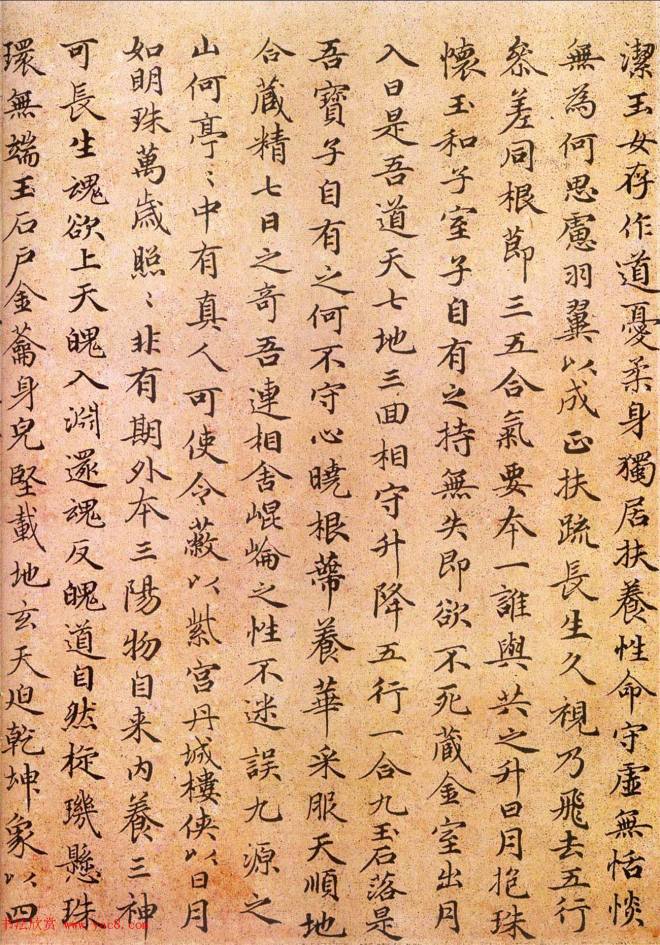 潔玉女存作道憂柔身獨居扶養性命守虛無恬惔
無為何思慮羽翼以成正扶疏長生久視乃飛去五行
叅差同根蔀三五合氣要本一誰與共之升日月抱珠
懷玉和子室子自有之持無失即欲不死藏金室出月
入日是吾道天七地三回相守升降五行一合九玉石落是
吾寶子自有之何不守心曉根蔕養華采服天順地
合藏精七日之奇吾連相舍崐崘之性不迷誤九源之
山何亭〻中有真人可使令蔽以紫宮丹城樓俠以日月
如明珠萬歲照〻非有期外本三陽物自来內養三神
可長生魂欲上天魄入淵還魂反魄道自然㨁璣懸珠
環無端玉石戶金蘥身皃堅載地玄天迫乾坤象以四
书法欣赏 www.yac8.com